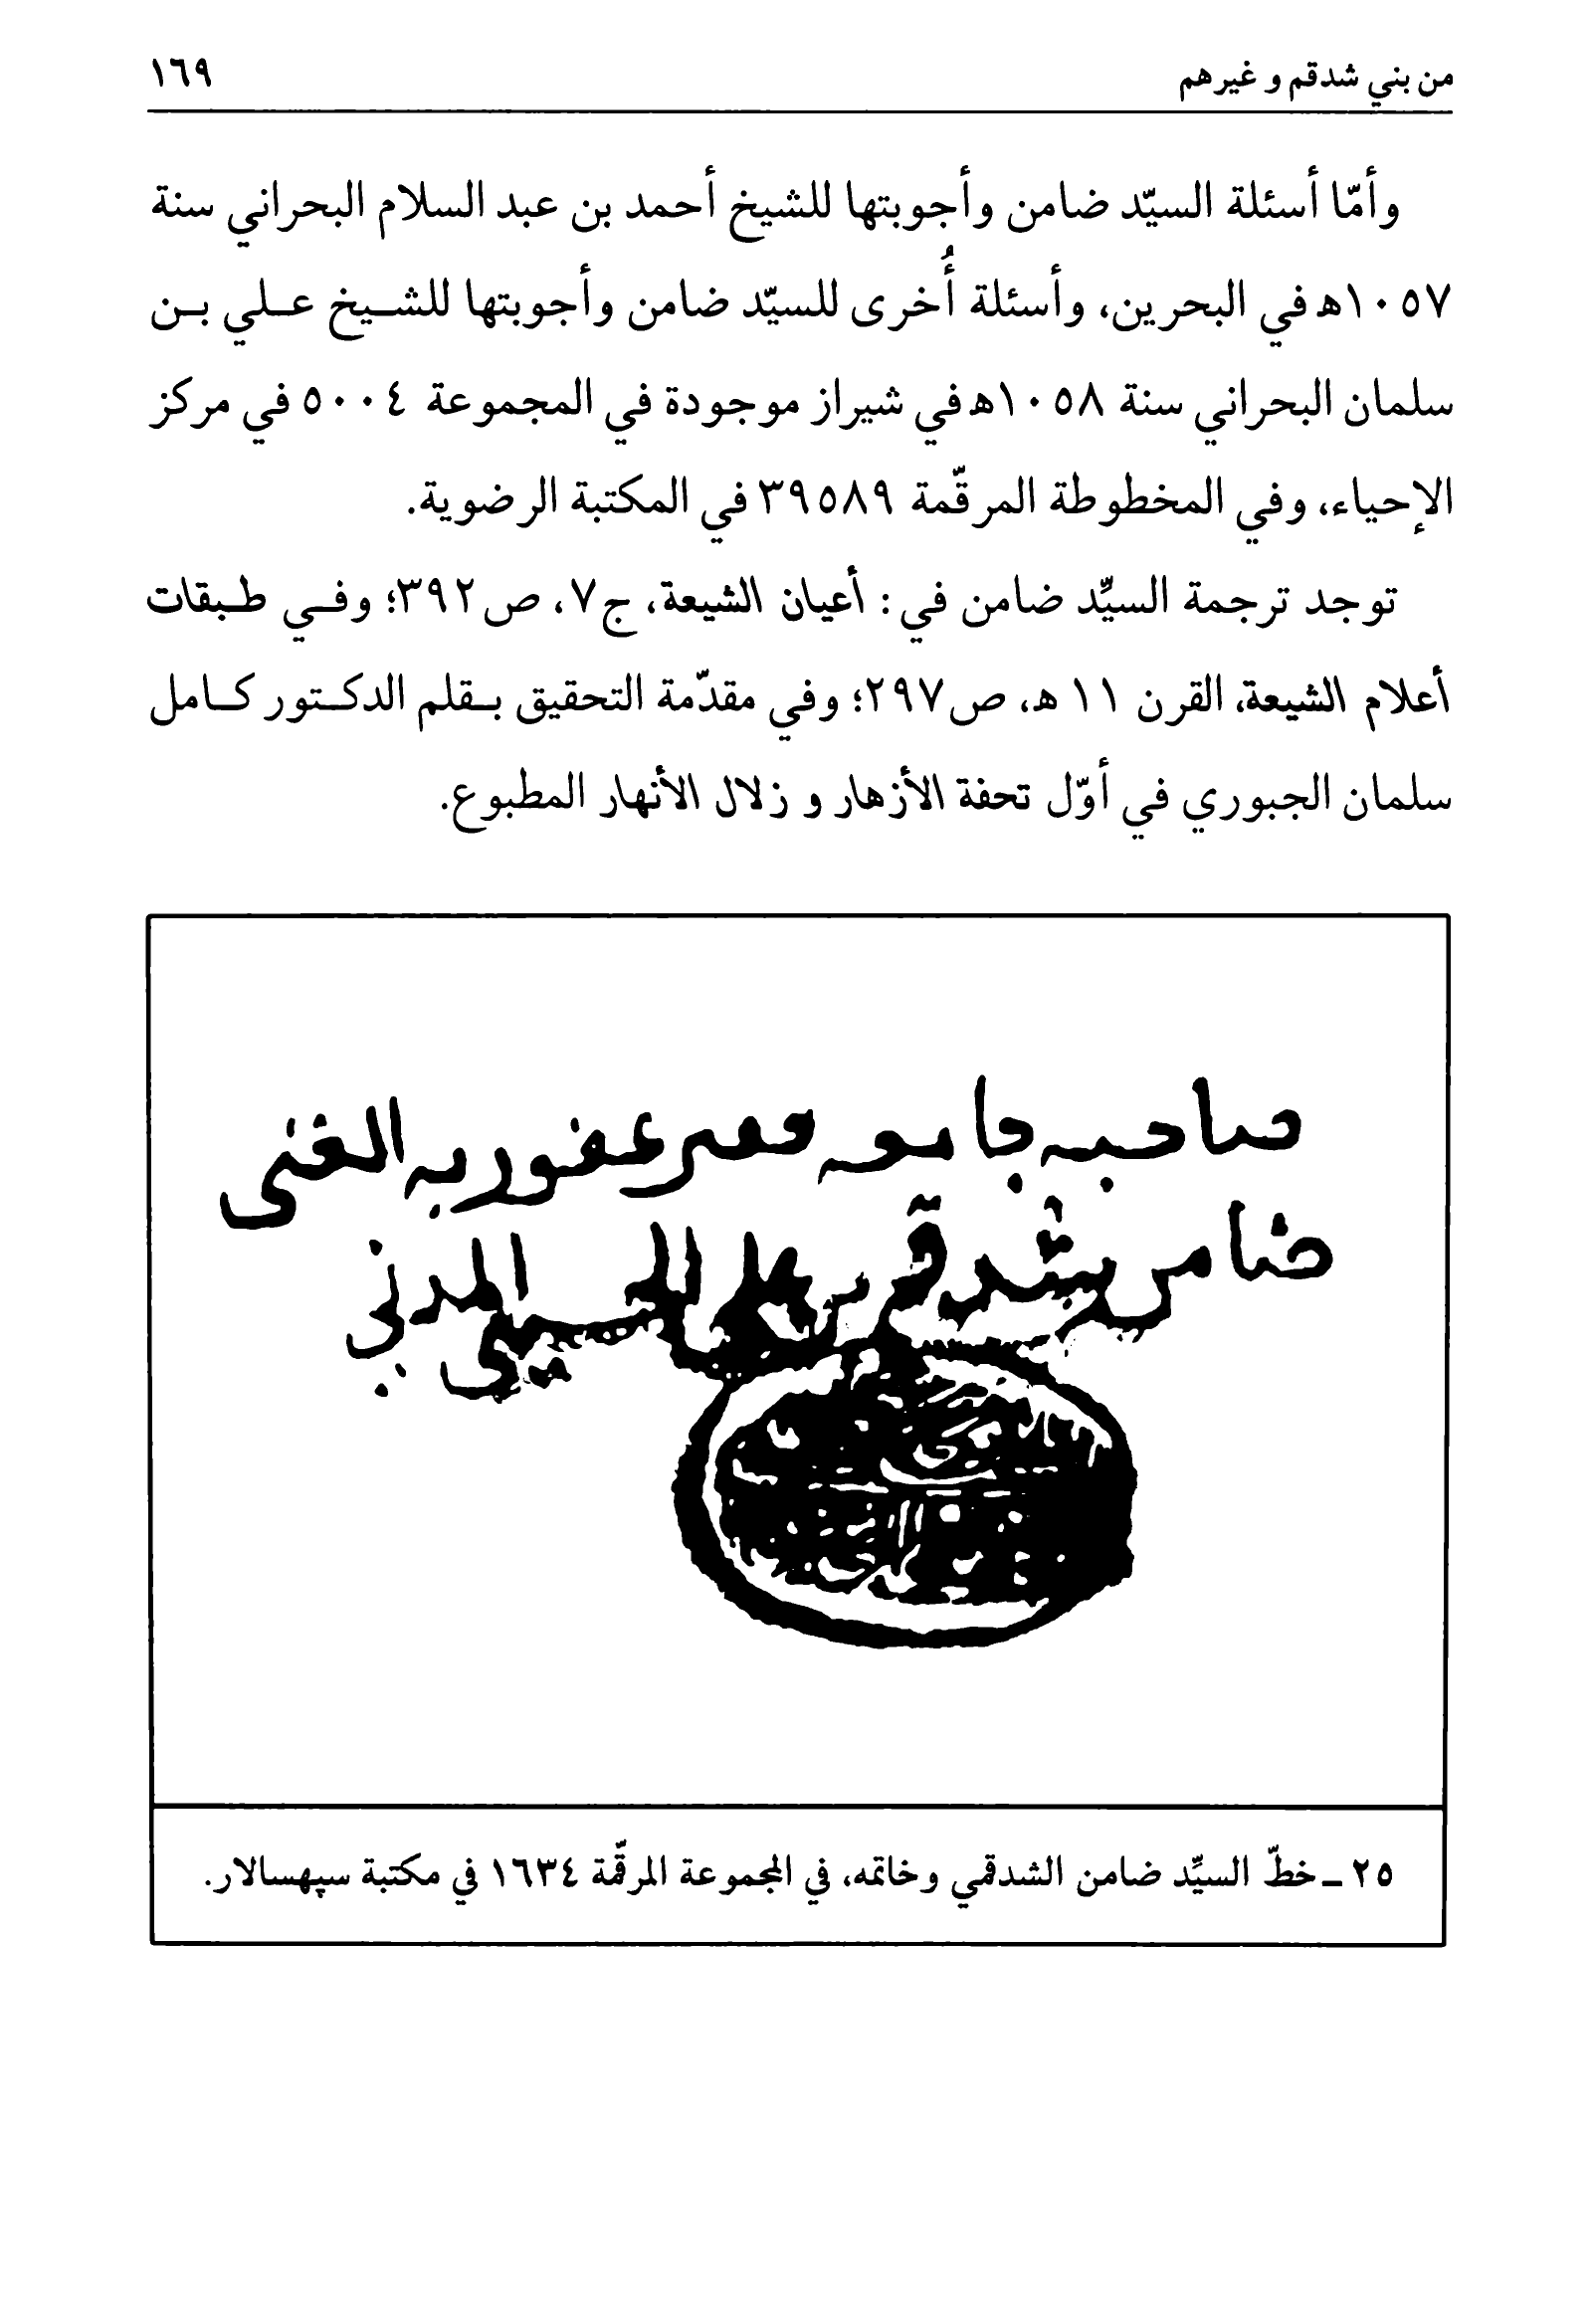 من بني شدقم و غيرهم ١٦٩
وأمّا أسئلة السيّد ضامن وأجوبتها للشيخ أحمد بن عبد السلام البحراني سنة
١٠٥٧ه في البحرين، وأسئلة أُخرى للسيّد ضامن وأجوبتها للشـيخ عـلي بـن
سلمان البحراني سنة ١٠٥٨ه في شيراز موجودة في المجموعة ٥٠٠٤ في مركز
الإحياء، وفي المخطوطة المرقّمة ٣٩٥٨٩ في المكتبة الرضوية.
توجد ترجمة السيِّد ضامن في: أعيان الشيعة، ج٧، ص٣٩٢؛ وفـي طـبقات
أعلام الشيعة، القرن ١١ ه، ص٢٩٧؛ وفي مقدّمة التحقيق بـقلم الدكـتور كـامل
سلمان الجبوري في أوّل تحفة الأزهار و زلال الأنهار المطبوع.
صاحبه جامعه فقير عفو ربه الغني
ضامن بن شدقم بن علي الحسيني المدني
٢٥ ـ خطّ السيِّد ضامن الشدقمي وخاتمه، في المجموعة المرقّمة ١٦٣٤ في مكتبة سپهسالار.